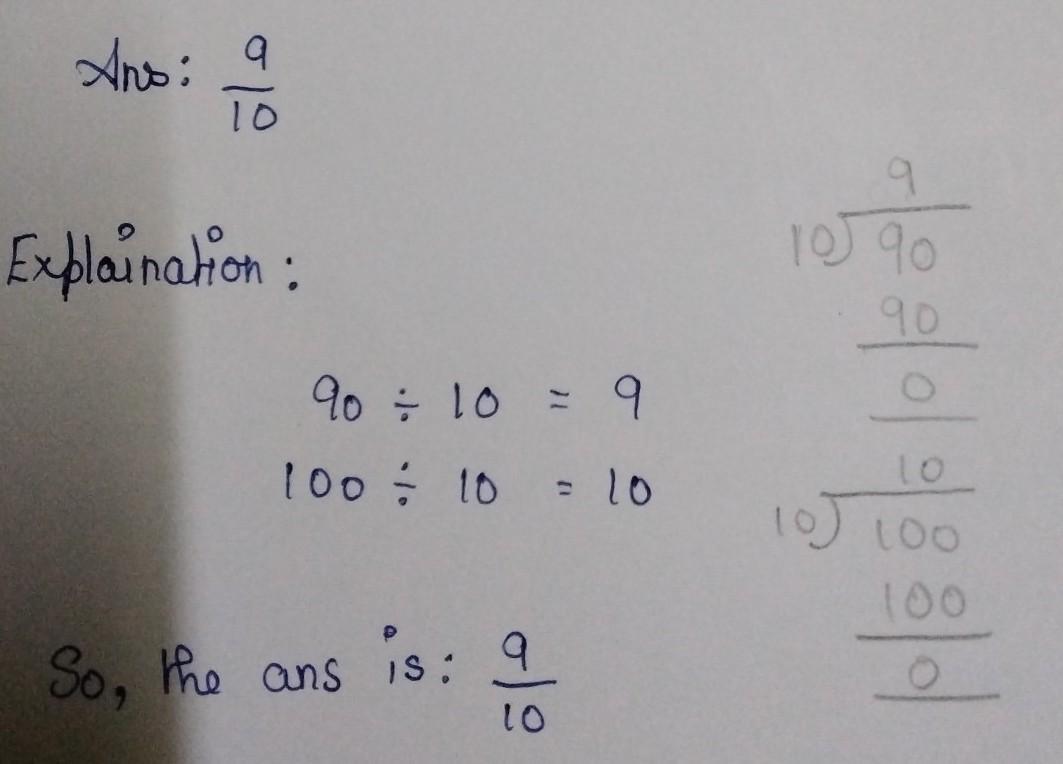 Ans: 9/10
Explaination:
90 ÷ 10 = 9
100 ÷ 10 = 10
So, the ans is: 9/10
9
10) 90
90
0
10
10) 100
100
0